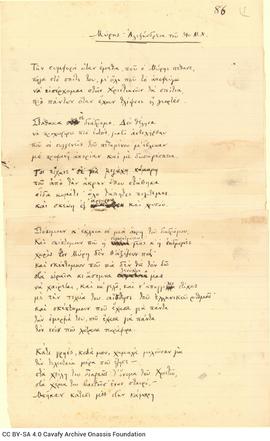 86
Μύρης· Ἀλεξάνδρεια τοῦ 340 Μ.Χ.
Τὴν συμφορὰ ὅταν ἔμαθα, ποὺ ὁ Μύρης πέθανε,
πῆγα στὸ σπίτι του, μ' ὅλο ποὺ τὸ ἀποφεύγω
νὰ εἰσέρχομαι στῶν Χριστιανῶν τὰ σπίτια,
πρὸ πάντων ὅταν ἔχουν θλίψεις ἢ γιορτές.
Στάθηκα σὲ διάδρομο. Δὲν θέλησα
νὰ προχωρήσω πιὸ ἐντός, γιατὶ ἀντελήφθην
ποὺ οἱ συγγενεῖς τοῦ πεθαμένου μ' ἔβλεπαν
μὲ προφανῆ ἀπορίαν καὶ μὲ δυσαρέσκεια.
Τὸν εἴχανε σὲ μιὰ μεγάλη κάμαρη
ποὺ ἀπὸ τὴν ἄκρην ὅπου στάθηκα
εἶδα κομμάτι· ὅλο τάπητες πολύτιμοι,
καὶ σκεύη ἐξ ἀργύρου καὶ χρυσοῦ.
Στέκομουν κ' ἔκλαια σὲ μιὰ ἄκρη τοῦ διαδρόμου.
Καὶ σκέπτομουν ποὺ ἡ μας κ' ἡ ἐκδρομὲς
χωρὶς τὸν Μύρη δὲν θ' ἀξίζουν πιά·
καὶ σκέπτομουν ποὺ πιὰ δὲν θὰ τὸν δῶ
στὰ ὡραῖα κι ἄσεμνα ξενύχτια μας
νὰ χαίρεται, καὶ νὰ γελᾶ, καὶ ν' ἀπαγγέλλει στίχους
μὲ τὴν τελεία του αἴσθησι τοῦ ἑλληνικοῦ ρυθμοῦ·
καὶ σκέπτομουν ποὺ ἔχασα γιὰ πάντα
τὴν ἐμορφιά του, ποὺ ἔχασα γιὰ πάντα
τὸν νέον ποὺ λάτρευα παράφορα.
Κάτι γρηές, κοντά μου, χαμηλὰ μιλοῦσαν γιὰ
τὴν τελευταία μέρα ποὺ ἔζησε —
στὰ χείλη του διαρκῶς τ' ὄνομα τοῦ Χριστοῦ,
στὰ χέρια του βαστοῦσ' ἕναν σταυρό. —
Μπῆκαν κατόπι μὲς στὴν κάμαρη
CC BY-SA 4.0 Cavafy Archive Onassis Foundation